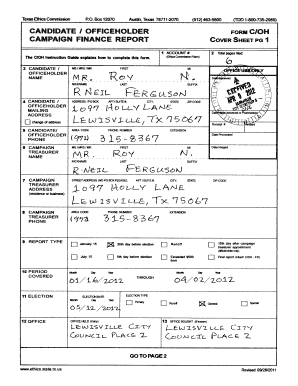 Texas Ethics Commission P.O. Box 12070 Austin, Texas 78711-2070 (512) 463-5800 (TDD 1-800-735-2989)
CANDIDATE / OFFICEHOLDER CAMPAIGN FINANCE REPORT
FORM C/OH
COVER SHEET PG 1
The C/OH Instruction Guide explains how to complete this form.
1 ACCOUNT #
(Ethics Commission Filers)
2 Total pages filed:
6
3 CANDIDATE / OFFICEHOLDER NAME
MS / MRS / MR FIRST MI
MR. ROY N.
NICKNAME LAST SUFFIX
R NEIL FERGUSON
OFFICE USE ONLY
Date Received
APR 2012
4 CANDIDATE / OFFICEHOLDER MAILING ADDRESS
change of address
ADDRESS / PO BOX; APT / SUITE #; CITY; STATE; ZIP CODE
1097 HOLLY LANE
LEWISVILLE, TX 75067
Date Hand-delivered or Postmarked
5 CANDIDATE / OFFICEHOLDER PHONE
AREA CODE PHONE NUMBER EXTENSION
(972) 315-8367
Receipt # Amount
Date Processed
6 CAMPAIGN TREASURER NAME
MS / MRS / MR FIRST MI
MR. ROY N.
NICKNAME LAST SUFFIX
R NEIL FERGUSON
Date Imaged
7 CAMPAIGN TREASURER ADDRESS
(residence or business)
STREET ADDRESS (NO PO BOX PLEASE); APT / SUITE #; CITY; STATE; ZIP CODE
1097 HOLLY LANE
LEWISVILLE, TX 75067
8 CAMPAIGN TREASURER PHONE
AREA CODE PHONE NUMBER EXTENSION
(972) 315-8367
9 REPORT TYPE
January 15
30th day before election
Runoff
15th day after campaign treasurer appointment (officeholder only)
July 15
8th day before election
Exceeded $500 limit
Final report (Attach C/OH - FR)
10 PERIOD COVERED
Month Day Year
01/16/2012 THROUGH 04/02/2012
11 ELECTION
ELECTION DATE
Month Day Year
05/12/2012
ELECTION TYPE
Primary
Runoff
General
Special
12 OFFICE
OFFICE HELD (if any)
LEWISVILLE CITY
COUNCIL PLACE 2
13 OFFICE SOUGHT (if known)
LEWISVILLE CITY
COUNCIL PLACE 2
GO TO PAGE 2
www.ethics.state.tx.us Revised 09/28/2011